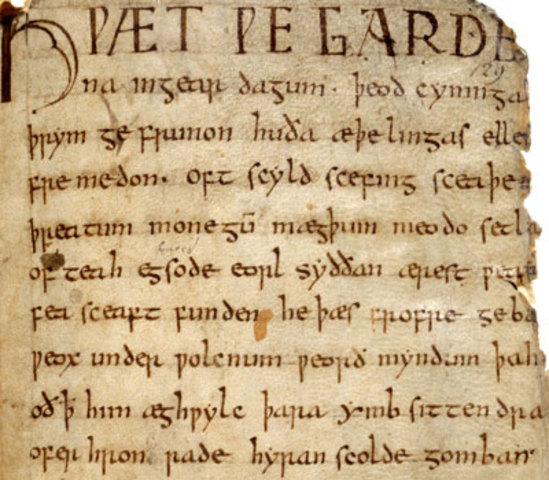 HǷÆT ǷE GARDE
129
na ingear dagum· þeod cyninga
þrym ge frunon huða æþelingas elle
fremedon· oft scyld scefing sceaþe
þreatum monegū mægþum meodo setla
of teah egsode eorl syððan ærest ƿearð
fea sceaft funden he þæs frofre geba
ƿeox under ƿolcnum ƿeorð myndum þah
oð ꝥ him æghƿylc þara ymb sittendra
ofer hron rade hyran scolde gomban